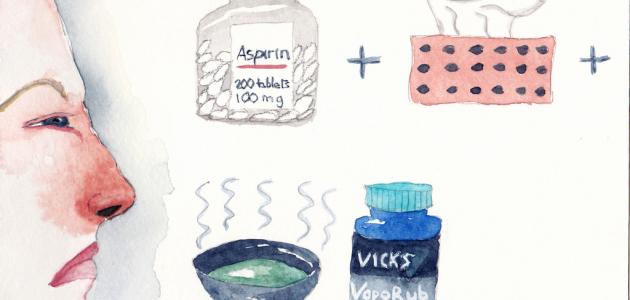 Aspirin
200 tablets
100 mg
VICKS
VapoRub